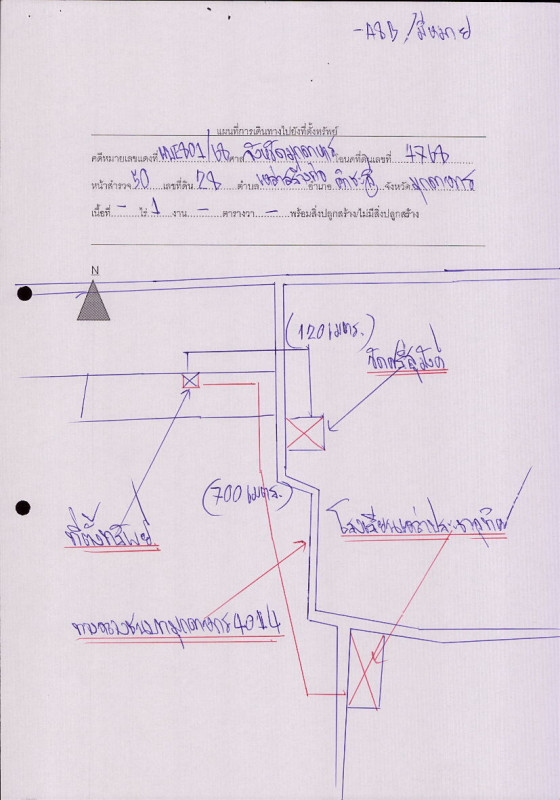 แผนที่การเดินทางไปยังที่ตั้งทรัพย์
คดีหมายเลขแดงที่ ศาล จังหวัดมุกดาหาร โฉนดที่ดินเลขที่ 7768
หน้าสำรวจ 30 เลขที่ดิน 28 ตำบล เหล่าสร้างถ่อ อำเภอ คำชะอี จังหวัด มุกดาหาร
เนื้อที่ - ไร่ 1 งาน - ตารางวา - พร้อมสิ่งปลูกสร้าง/ไม่มีสิ่งปลูกสร้าง
N
(120 เมตร.)
(700 เมตร.)
ที่ตั้งทรัพย์
ทางหลวงชนบทมุกดาหาร 4014